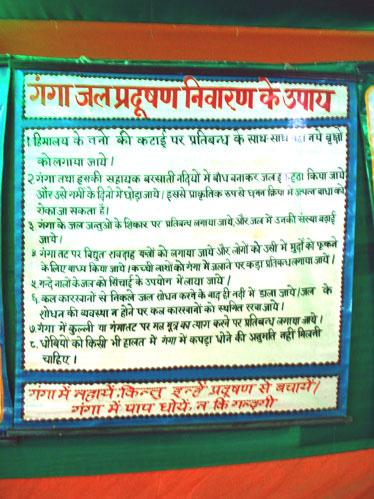 गंगा जल प्रदूषण निवारण के उपाय
१ हिमालय के वनो की कटाई पर प्रतिबन्ध के साथ-साथ वहां नये वृक्षों
को लगाया जाये।
२ गंगा तथा इसकी सहायक बरसाती नदियों में बाँध बनाकर जल इकट्ठा किया जाये
और उसे गर्मी के दिनो में छोड़ा जाये। इससे प्राकृतिक रूप से घुलन क्रिया में जल बाधा को
रोका जा सकता है।
३ गंगा के जल जन्तुओं के शिकार पर प्रतिबन्ध लगाया जाये, और जल में उनकी संख्या बढ़ाई
जाये।
४ गंगा तट पर विद्युत शवदाह यंत्रों को लगाया जाये और लोगों को उसी में मुर्दो को फूकने
के लिए बाध्य किया जाये। कच्ची लाशों को गंगा में जलाने पर कड़ा प्रतिबन्ध लगाया जाये।
५ गन्दे नालों के जल को सिंचाई के उपयोग में लाया जाये।
६ कल कारखानों से निकले जल शोधन करने के बाद ही नदी में डाला जाये। जल के
शोधन की व्यवस्था न होने पर कल कारखानों को स्थगित रखा जाये।
७ गंगा में कुल्ली या गंगातट पर मल मूत्र का त्याग करने पर प्रतिबन्ध लगाया जाये।
८. धोबियों को किसी भी हालत में गंगा में कपड़ा धोने की अनुमति नहीं मिलनी
चाहिए।
गंगा में नहायें, किन्तु इन्हें प्रदूषण से बचायें।
गंगा में पाप धोयें, न कि गन्दगी